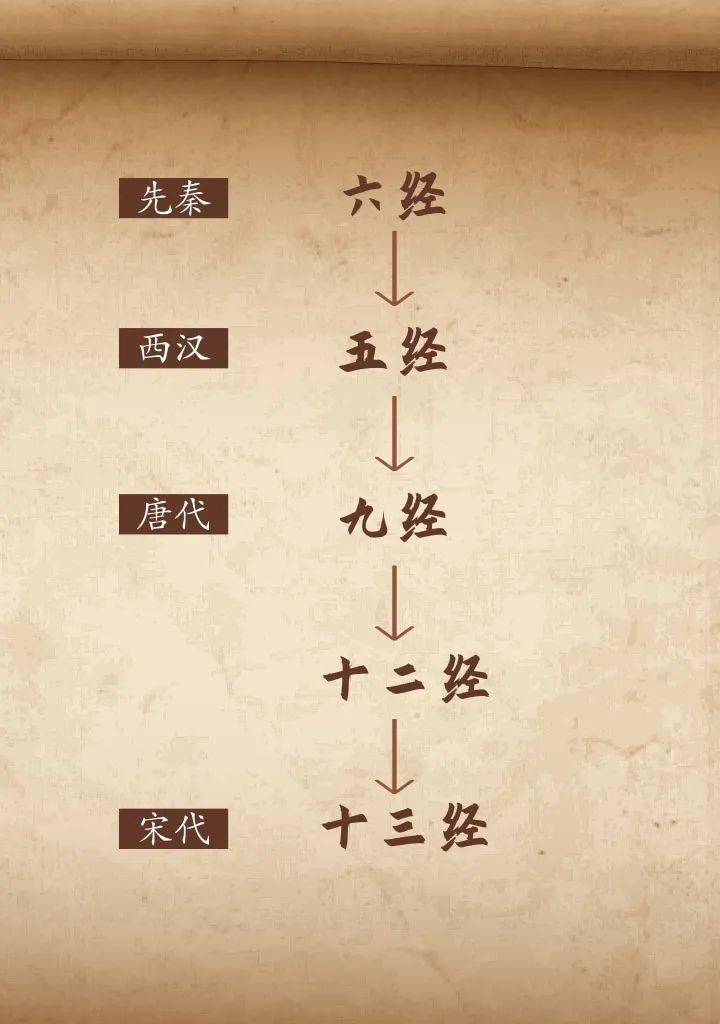 先秦 六经
西汉 五经
唐代 九经
十二经
宋代 十三经